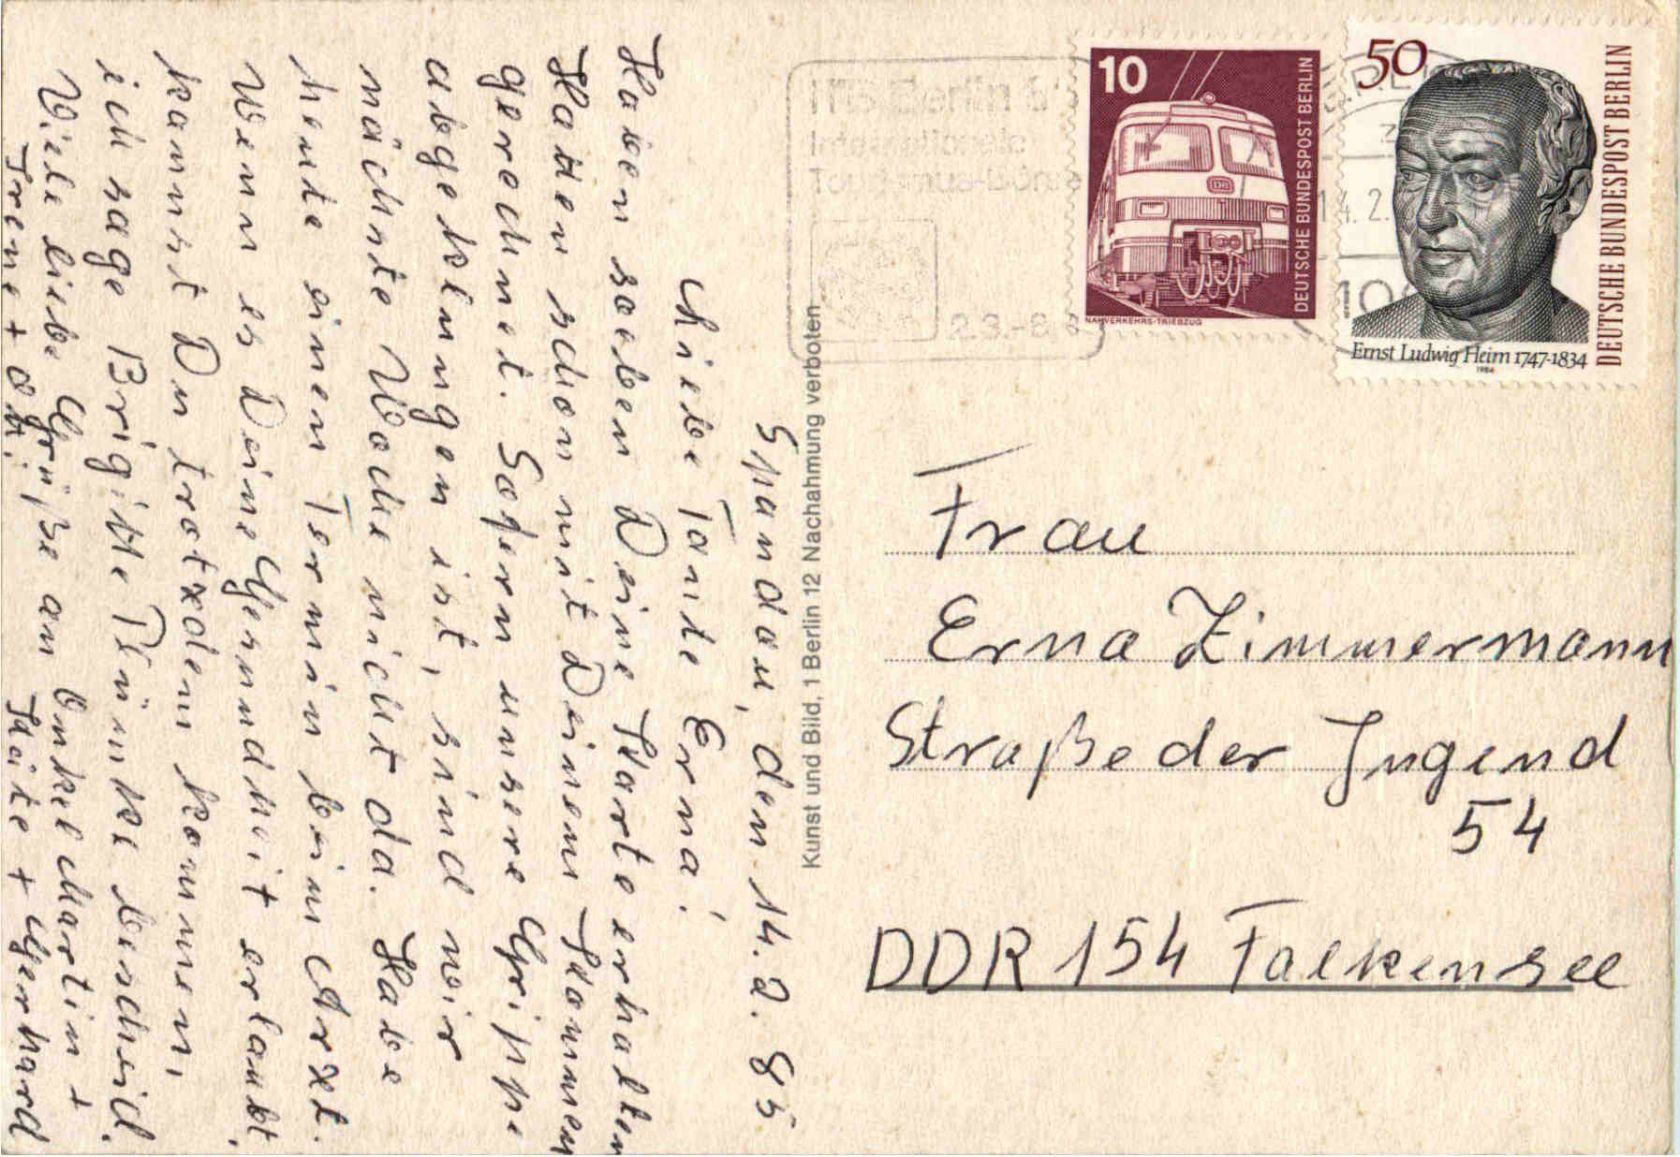 Spandau, den 14.2.85
Liebe Tante Erna!
Haben soeben Deine Karte erhalten
Hatten schon mit Deinem Kommen
gerechnet. Sofern unsere Grippe
abgeklungen ist, sind wir
nächste Woche nicht da. Habe
heute einen Termin beim Arzt.
Wenn es Deine Gesundheit erlaubt,
kannst Du trotzdem kommen,
ich sage Brigitte Plünke bescheid.
Viele liebe Grüße an Onkel Martin +
Irene + Käte + Gerhard
Kunst und Bild, 1 Berlin 12 Nachahmung verboten
ITB Berlin
Internationale
Tourismus-Börse
2.3.-8.3
10
DEUTSCHE BUNDESPOST BERLIN
NAHVERKEHRS-TRIEBZUG
14.2.
50
DEUTSCHE BUNDESPOST BERLIN
Ernst Ludwig Heim 1747-1834
1984
Frau
Erna Zimmermann
Straße der Jugend
54
DDR 154 Falkensee